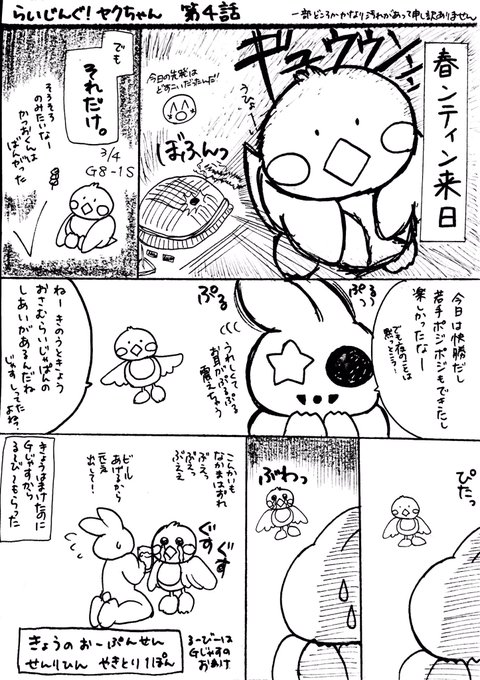 らいじんぐ！ヤクちゃん 第4話
一部どころかかなり汚れがあって申し訳ありません
春ンティン来日
ギュウウン
うひょー
今日の先発は
どすこいだったんだ！
ぼふんっ
でも
それだけ。
3/4
G8-1S
そろそろ
のみたいなー
かつおくんは
ばんがった
今日は快勝だし
若手ポジポジもできたし
楽しかったなー
でも夜のことは
黙っとこう
ぷるぅぅ
ぷる
うれしくて
お耳がぷるぷる
震えちゃう
ねーきのうときょう
おさむらいじゃぱんの
しあいがあるんだね
じゃすってた
よね？
ぴたっ
ぶわっ
こんかいも
なかまはずれ
ぷぇっ
ぷぇっ
ぷぇぇ
ぐすぐす
ビール
あげるから
元気
出して！
きょうはまけたのに
Gじゃすから
るーびーもらった
きょうのおーぷんせん
せんりひん やきとり1ぽん
るーびーは
Gじゃすの
おあけ